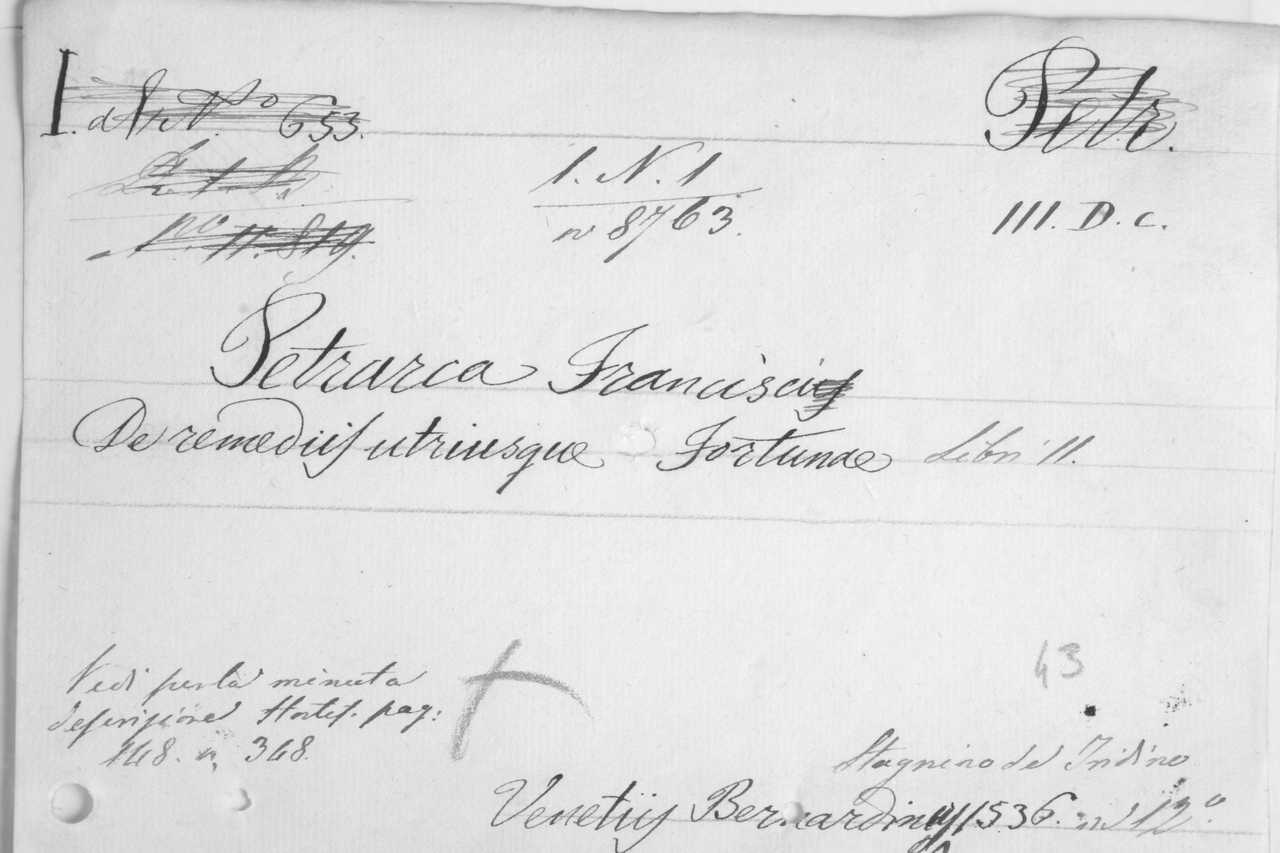 I. N.º 653.
Petr.
1. N. 1
n 8763.
III. D. c.
nº 11.819.
Petrarca Francisci
De remediis utriusque Fortunae Libri II.
43
Vedi per la minuta
descrizione Hortis. pag:
148. n. 348.
Stagnino de Tridino
Venetiis Bernardinus 1536. in 12º